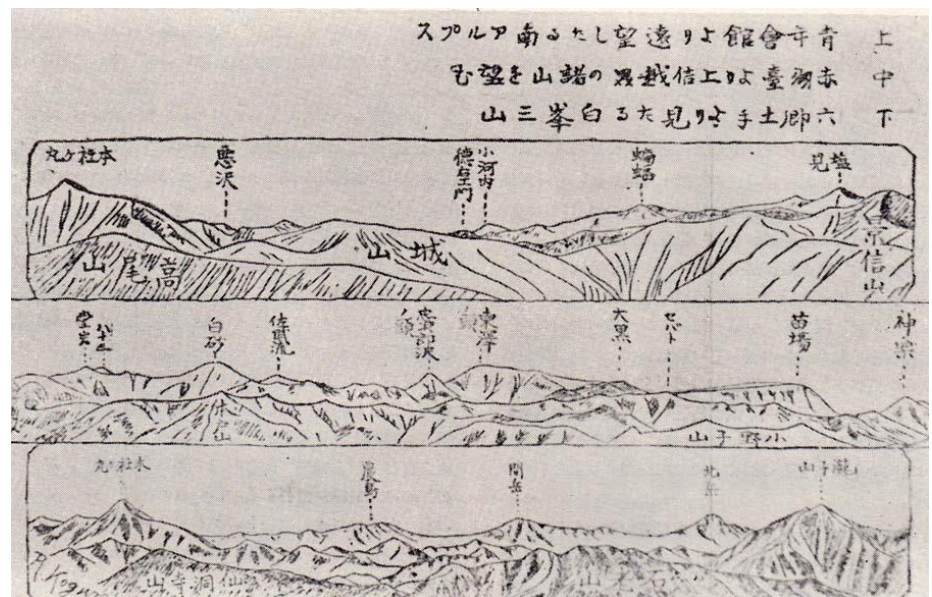 上 青年會館より遠望したる南アルプス
中 赤羽臺より上信越界の諸山を望む
下 六郷土手より見たる白峯三山
塩見
蝙蝠
小河内
悪沢
本社ヶ丸
景信山
城山
高尾山
苗場
セバト
大黒
佐武流
白砂
堂岩
小野子山
瀧子山
北岳
間岳
農鳥
本社ヶ丸
石老山
仙洞寺山